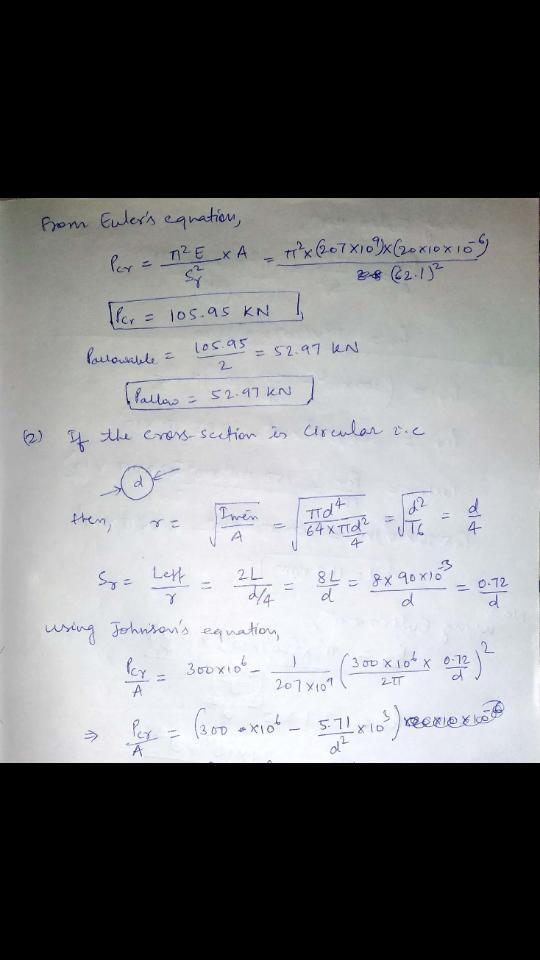 From Euler's equation,
Pcr = π²E/Sr² × A = π²×(207×10⁹)×(20×10×10⁻⁶)/(62.1)²
Pcr = 105.95 KN
Pallowable = 105.95/2 = 52.97 KN
Pallow = 52.97 KN
(2) If the cross-section is circular i.e
d
then, r = √(Imin/A) = √(πd⁴/(64×πd²/4)) = √(d²/16) = d/4
Sr = Leff/r = 2L/(d/4) = 8L/d = 8×90×10⁻³/d = 0.72/d
using Johnson's equation,
Pcr/A = 300×10⁶ - 1/(207×10⁹) (300×10⁶/2π × 0.72/d)²
⇒ Pcr/A = (300×10⁶ - 5.71/d² ×10³)